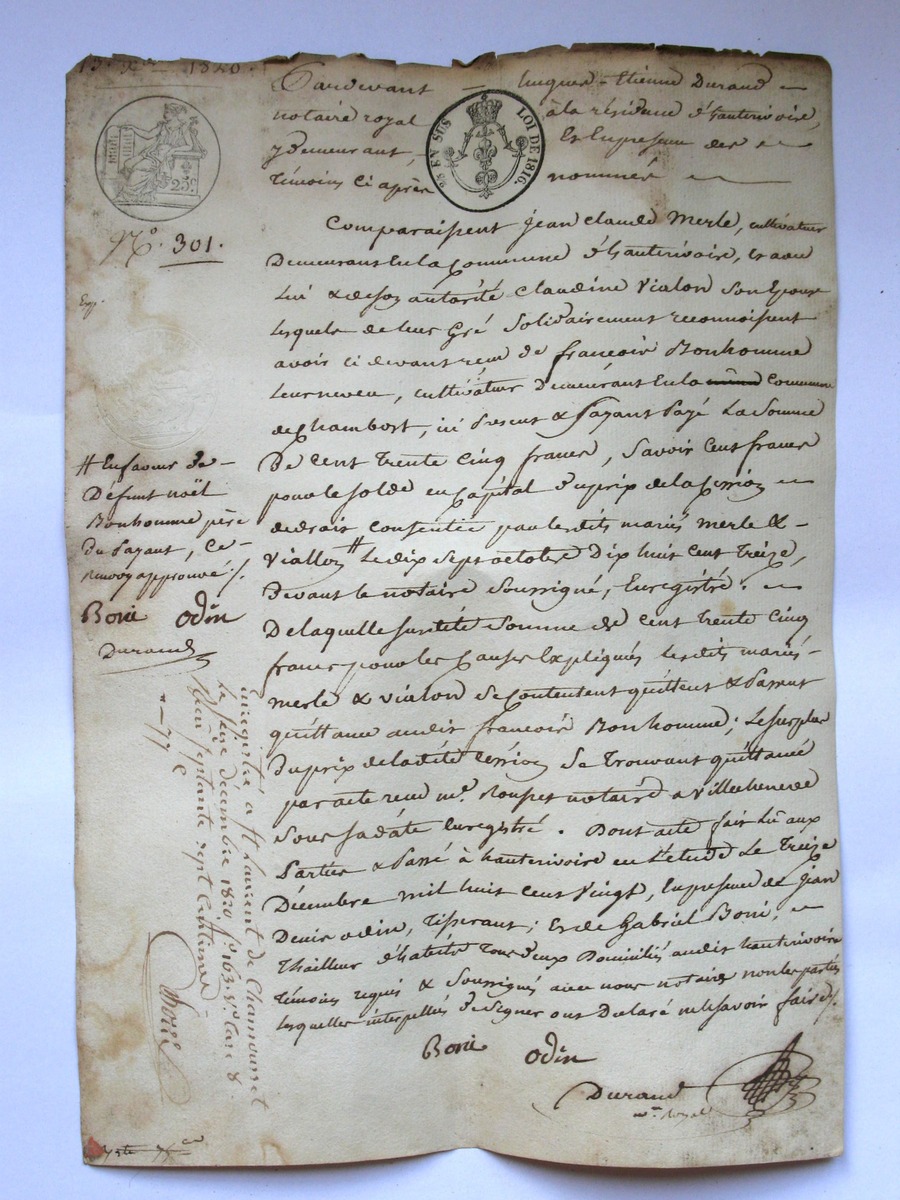 13. Xbre 1820.
Pardevant hugues - Etienne Durand
notaire royal à la résidence d'hauterivoire,
y Demeurant, Et En presence des
témoins ci après nommés
25 EN SUS LOI DE 1816.
25c.
No. 301.
Comparaissent jean Claude Merle, cultivateur
Demeurant En la Commune d'hauterivoire, et avec
Lui & de son autorité Claudine Vialon son Epouse
lesquels de leur Gré Solidairement reconnoissent
avoir ci devant reçu de françois Bonhomme
Leur neveu, cultivateur Demeurant En la Commune
de Chambost, ici present & payant la Somme
De Cent trente Cinq francs, Savoir Cent francs
pour le solde en Capital du prix de la Cession
de droits Consentie par lesdits mariés Merle &
Viallon # Le dix sept octobre Dix huit Cent treize,
Devant le notaire Soussigné, Enregistré.
De laquelle susdité Somme de Cent trente Cinq
francs pour les Causes Expliqués lesdits mariés
merle & vialon Se Contentent quittent & passent
quittance audit françois Bonhomme; Le surplus
Du prix de ladité Cession Se trouvant quittancé
par acte reçu me. Roupet notaire a Villechenève
Sous sa daté Enregistré. Dont acte fait Lû aux
parties & passé à hauterivoire en L'etude Le treize
Décembre mil huit Cent Vingt, En presence de Jean
Denis odin, tisserant; Et de Gabriel Boni,
thailleur d'habits tous deux Domiciliés audit hauterivoire
témoins requis & Soussignés avec nous notaire non les parties
lesquelles interpellés De Signer ont Déclaré ne le savoir faire ./.
Boni odin
Durand
nre. Royal
Exp.
# En faveur de
Défunt noël
Bonhomme père
Du payant, Ce
renvoy approuvé ./.
Boni odin
Durand
Enregistré a St Laurent de Chamousset
le seize decembre 1820, fo 163. Vo Case 8
Reçu septante sept Centimes
77 c